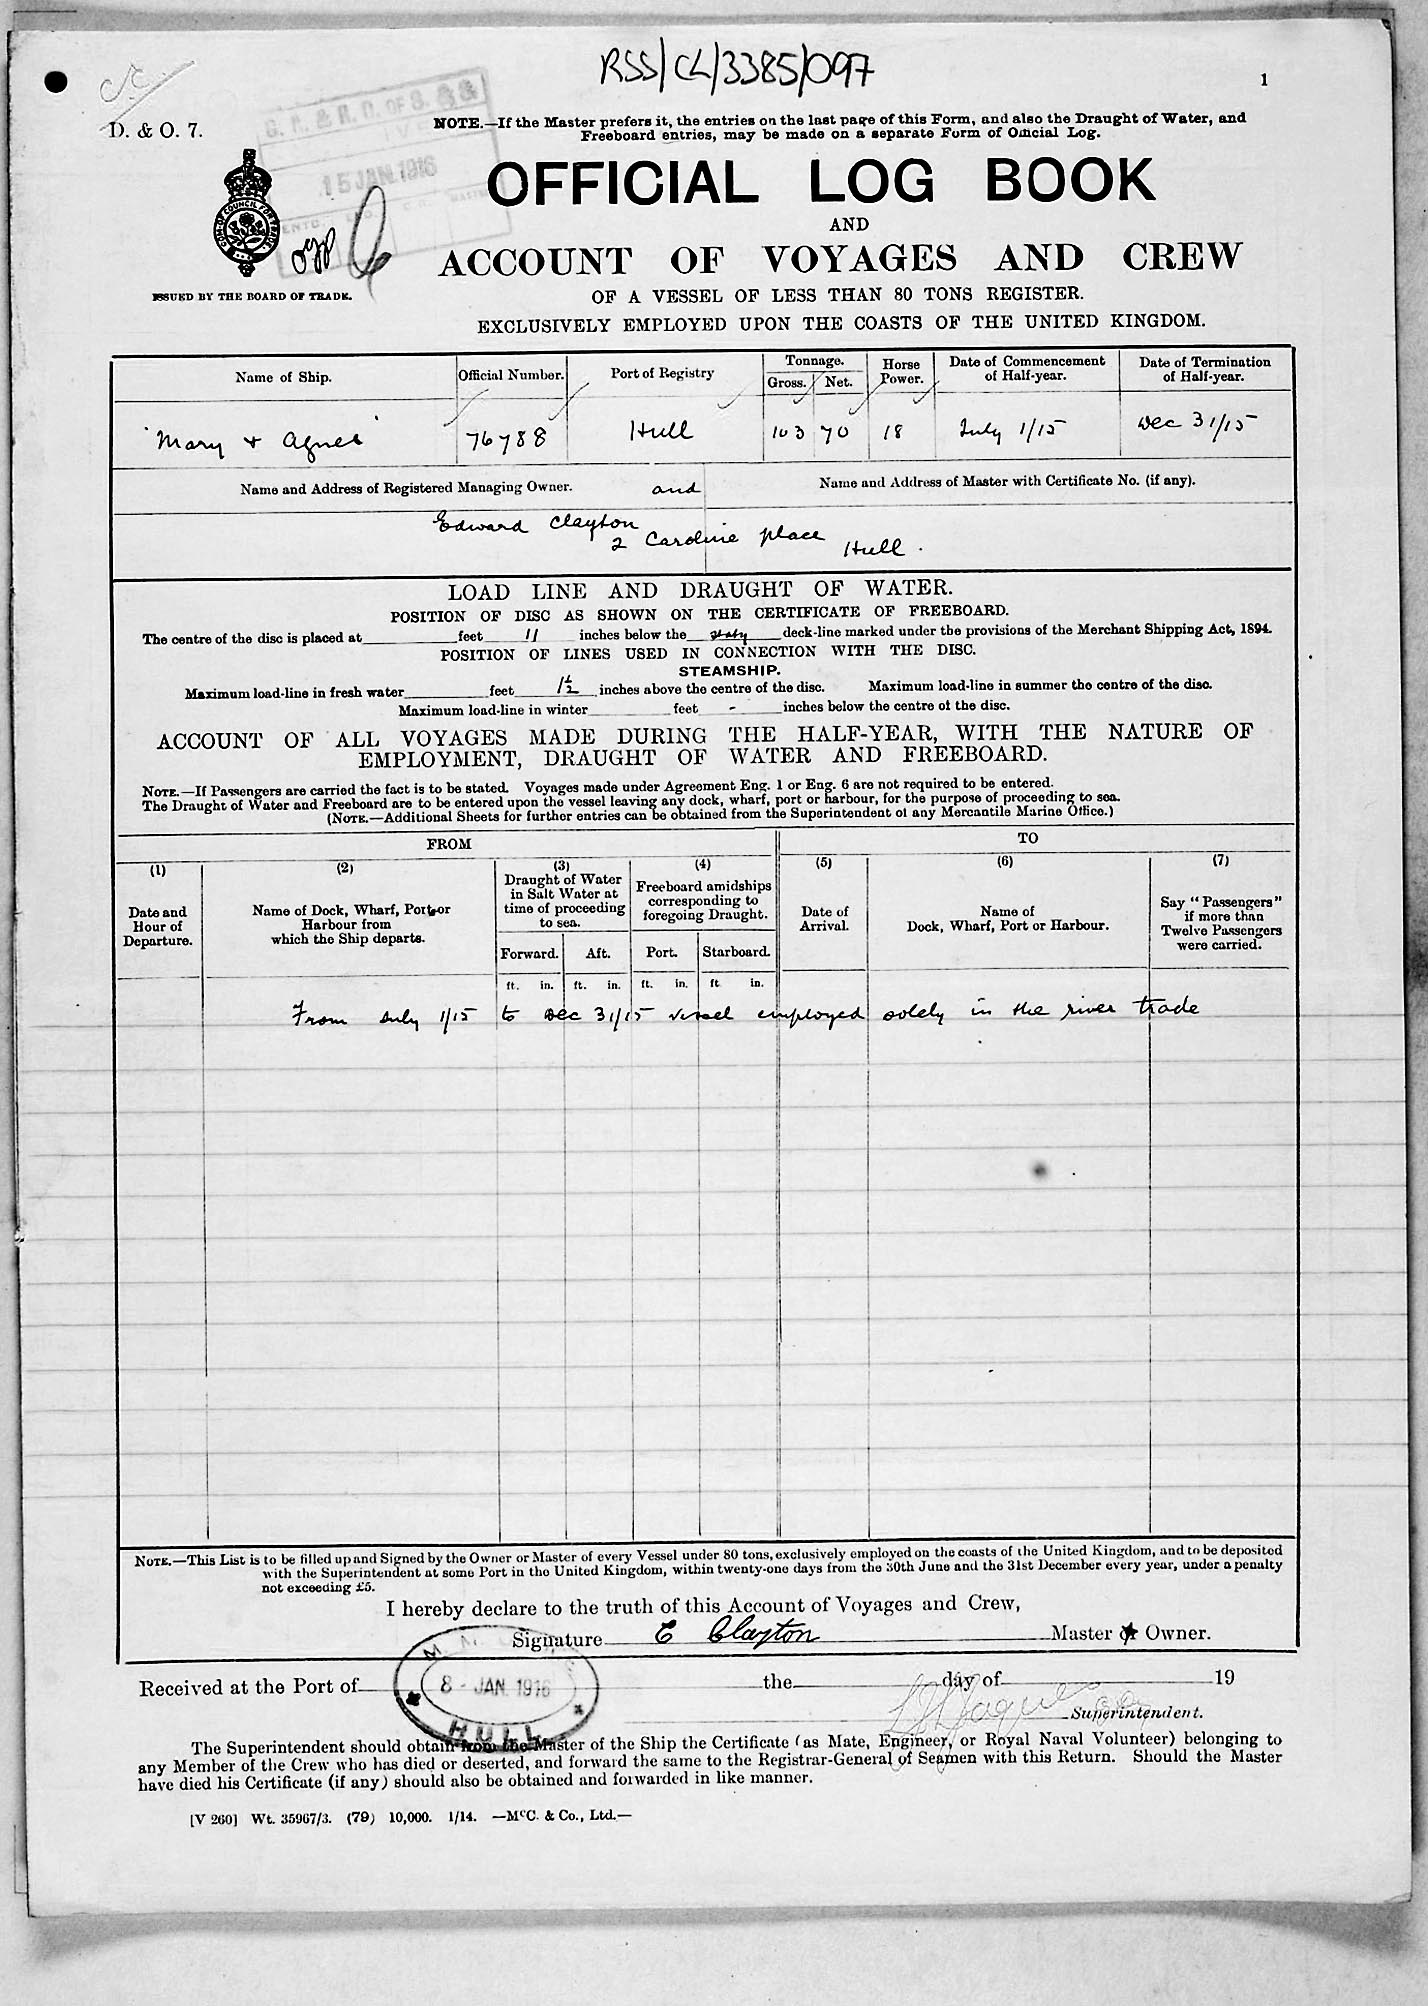 RSS/CL/3385/097
1
D. & O. 7.
15 JAN. 1916
NOTE.—If the Master prefers it, the entries on the last page of this Form, and also the Draught of Water, and
Freeboard entries, may be made on a separate Form of Official Log.
OFFICIAL LOG BOOK
AND
ACCOUNT OF VOYAGES AND CREW
OF A VESSEL OF LESS THAN 80 TONS REGISTER.
EXCLUSIVELY EMPLOYED UPON THE COASTS OF THE UNITED KINGDOM.
COM. OF COUNCIL FOR TRADE
ISSUED BY THE BOARD OF TRADE.
Name of Ship. Official Number. Port of Registry Tonnage. Gross. Net. Horse Power. Date of Commencement of Half-year. Date of Termination of Half-year.
"Mary & Agnes" 76788 Hull 103 70 18 July 1/15 Dec 31/15
Name and Address of Registered Managing Owner. and Name and Address of Master with Certificate No. (if any).
Edward Clayton
2 Caroline place
Hull.
LOAD LINE AND DRAUGHT OF WATER.
POSITION OF DISC AS SHOWN ON THE CERTIFICATE OF FREEBOARD.
The centre of the disc is placed at feet 11 inches below the deck-line marked under the provisions of the Merchant Shipping Act, 1894.
POSITION OF LINES USED IN CONNECTION WITH THE DISC.
STEAMSHIP.
Maximum load-line in fresh water feet 1½ inches above the centre of the disc. Maximum load-line in summer the centre of the disc.
Maximum load-line in winter feet - inches below the centre of the disc.
ACCOUNT OF ALL VOYAGES MADE DURING THE HALF-YEAR, WITH THE NATURE OF
EMPLOYMENT, DRAUGHT OF WATER AND FREEBOARD.
NOTE.—If Passengers are carried the fact is to be stated. Voyages made under Agreement Eng. 1 or Eng. 6 are not required to be entered.
The Draught of Water and Freeboard are to be entered upon the vessel leaving any dock, wharf, port or harbour, for the purpose of proceeding to sea.
(NOTE.—Additional Sheets for further entries can be obtained from the Superintendent of any Mercantile Marine Office.)
FROM TO
(1) (2) (3) (4) (5) (6) (7)
Date and Hour of Departure. Name of Dock, Wharf, Port or Harbour from which the Ship departs. Draught of Water in Salt Water at time of proceeding to sea. Freeboard amidships corresponding to foregoing Draught. Date of Arrival. Name of Dock, Wharf, Port or Harbour. Say "Passengers" if more than Twelve Passengers were carried.
Forward. Aft. Port. Starboard.
ft. in. ft. in. ft. in. ft in.
From July 1/15 to Dec 31/15 vessel employed solely in the river trade
NOTE.—This List is to be filled up and Signed by the Owner or Master of every Vessel under 80 tons, exclusively employed on the coasts of the United Kingdom, and to be deposited
with the Superintendent at some Port in the United Kingdom, within twenty-one days from the 30th June and the 31st December every year, under a penalty
not exceeding £5.
I hereby declare to the truth of this Account of Voyages and Crew,
Signature E Clayton Master or Owner.
8 - JAN. 1916
HULL
Received at the Port of the day of 19
Superintendent.
The Superintendent should obtain from the Master of the Ship the Certificate (as Mate, Engineer, or Royal Naval Volunteer) belonging to
any Member of the Crew who has died or deserted, and forward the same to the Registrar-General of Seamen with this Return. Should the Master
have died his Certificate (if any) should also be obtained and forwarded in like manner.
[V 260] Wt. 35967/3. (79) 10,000. 1/14. —McC. & Co., Ltd.—